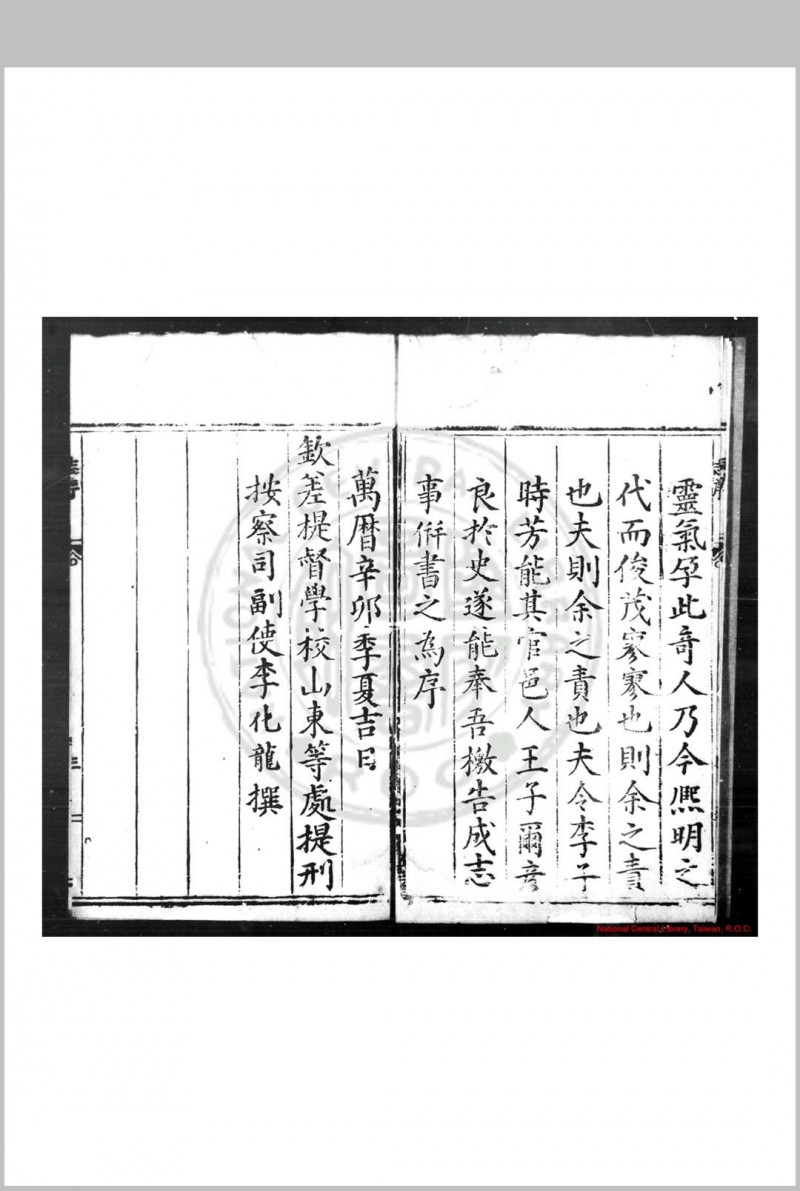 靈氣孕此奇人乃今熈明之
代而俊茂寥寥也則余之責
也夫則余之責也夫令李子
時芳能其官邑人王子爾彦
良於史遂能奉吾檄告成志
事併書之為序
萬曆辛卯季夏吉日
欽差提督學校山東等處提刑
按察司副使李化龍撰
National Central Library, Taiwan, R.O.C.